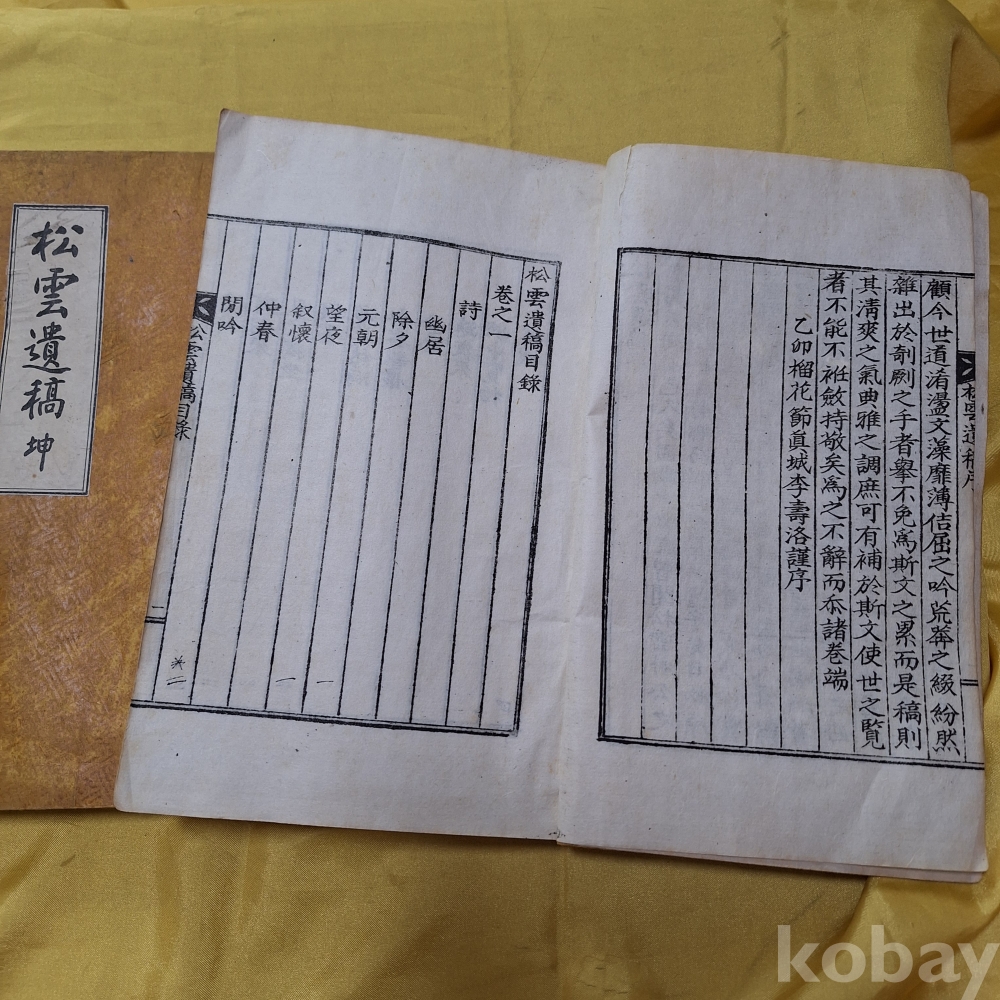 顧今世道淆盪文藻靡薄佶屈之吟荒莽之綴紛然
雜出於剞劂之手者擧不免爲斯文之累而是稿則
其淸爽之氣典雅之調庶可有補於斯文使世之覽
者不能不袵斂持敬矣爲之不辭而忝諸卷端
乙卯榴花節眞城李壽洛謹序
松雲遺稿序
松雲遺稿目錄
卷之一
詩
幽居
除夕
元朝
望夜
一
叙懷
一
仲春
閒吟
松雲遺稿目錄
二
松雲遺稿 坤
kobay